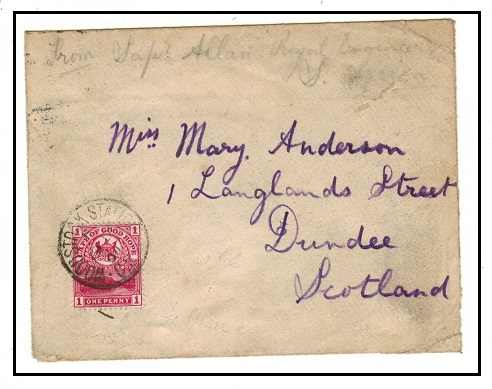 From Sapr Allan Royal Engineers
S. Africa
Miss Mary. Anderson
1 Langlands Street
Dundee
Scotland
WOODSTOCK STATION
1 1
CAPE OF GOOD HOPE
1 ONE PENNY 1